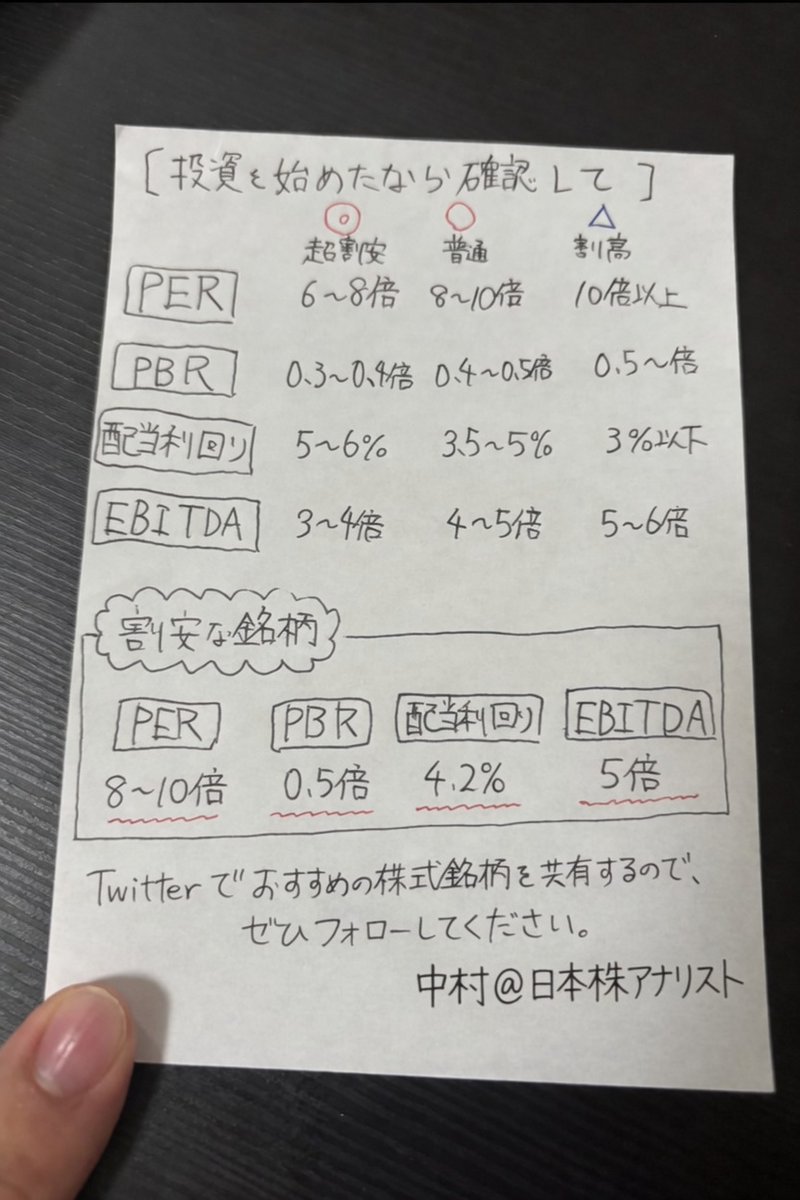 [投資を始めたなら確認して]
◎ ○ △
超割安 普通 割高
PER 6~8倍 8~10倍 10倍以上
PBR 0.3~0.4倍 0.4~0.5倍 0.5~倍
配当利回り 5~6% 3.5~5% 3%以下
EBITDA 3~4倍 4~5倍 5~6倍
割安な銘柄
PER PBR 配当利回り EBITDA
8~10倍 0.5倍 4.2% 5倍
Twitterでおすすめの株式銘柄を共有するので、
ぜひフォローしてください。
中村@日本株アナリスト